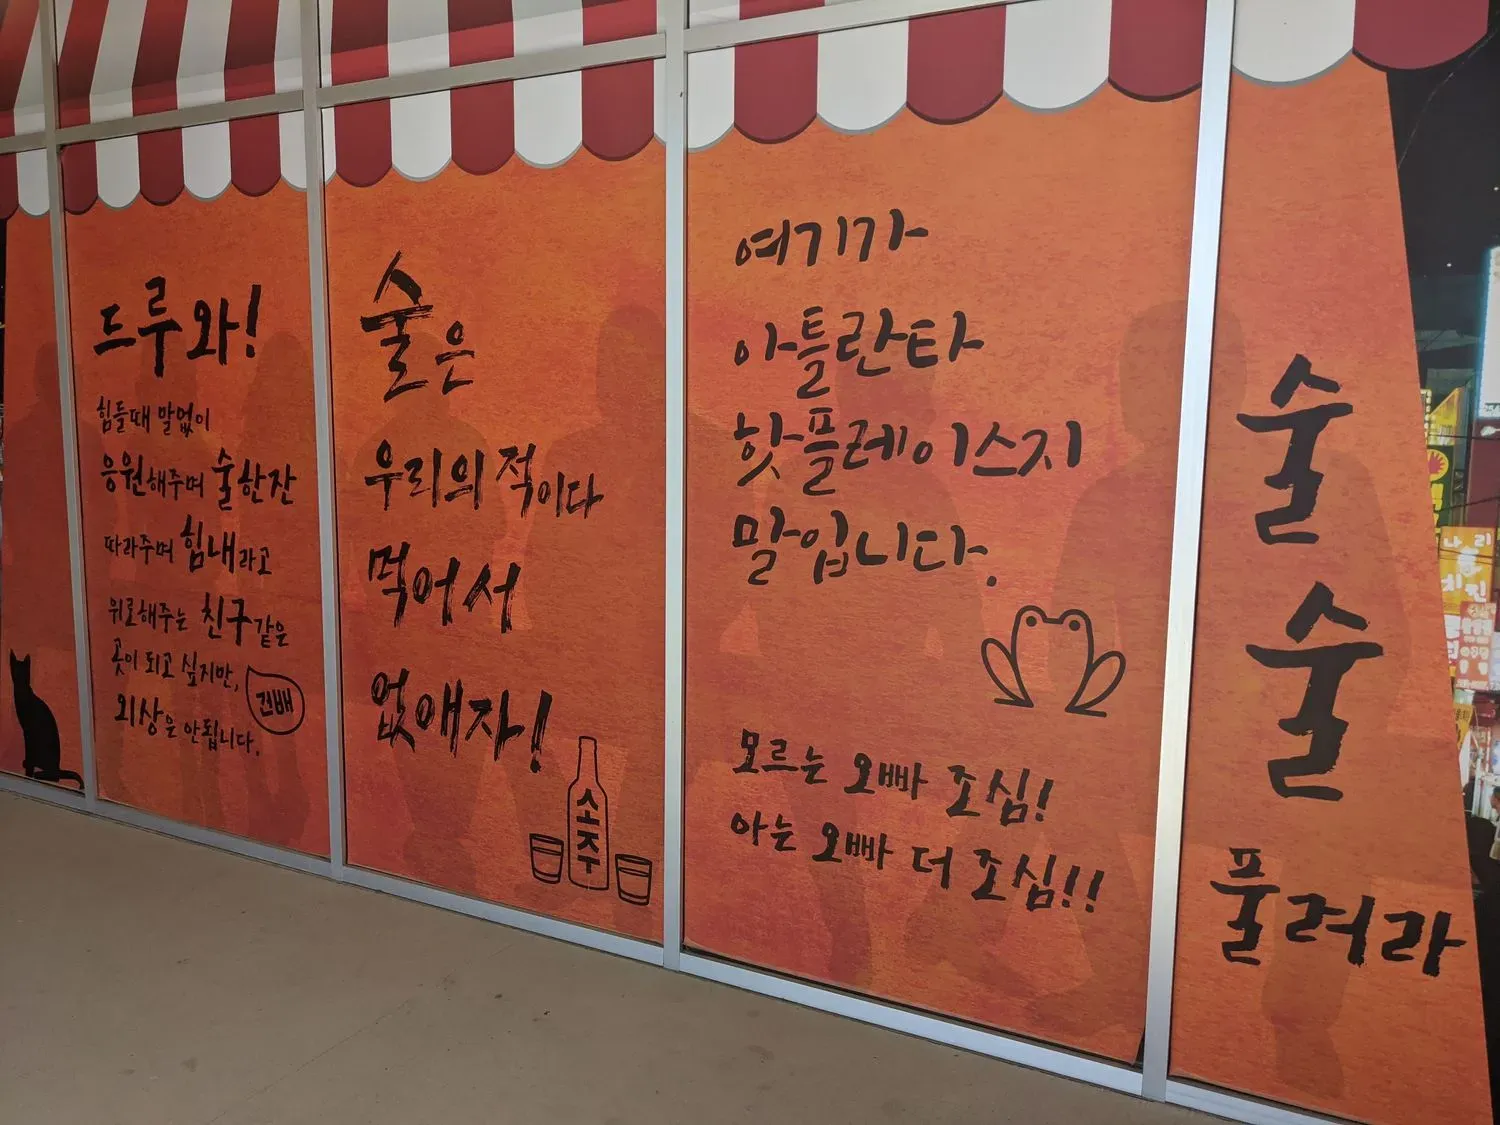 드루와!
힘들때 말없이
응원해주며 술한잔
따라주며 힘내라고
위로해주는 친구같은
곳이 되고 싶지만,
외상은 안됩니다.
건배
술은
우리의 적이다
먹어서
없애자!
소주
여기가
아틀란타
핫플레이스지
말입니다.
모르는 오빠 조심!
아는 오빠 더 조심!!
술
술
풀려라